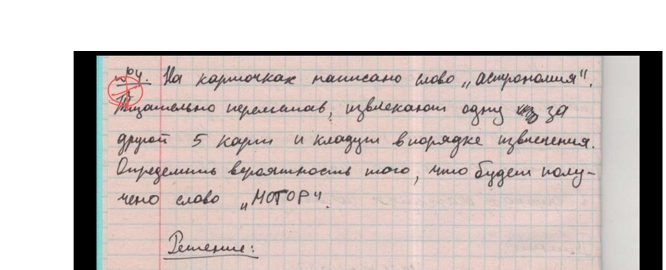 №4. На карточках написано слово „астрономия".
Тщательно перемешав, извлекают одну за
другой 5 карт и кладут в порядке извлечения.
Определить вероятность того, что будет полу-
чено слово „МОТОР".
Решение: